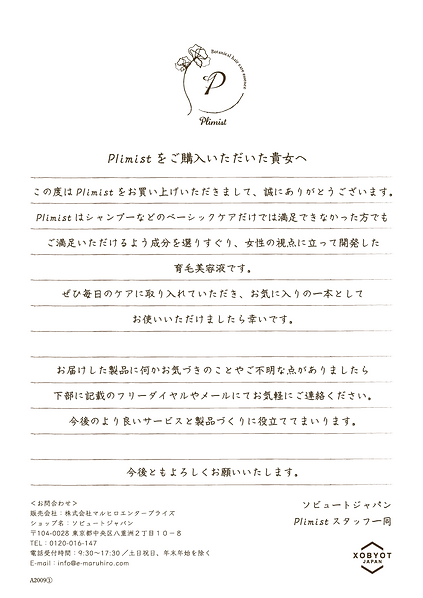 Botanical hair care essence
P
Plimist
Plimistをご購入いただいた貴女へ
この度はPlimistをお買い上げいただきまして、誠にありがとうございます。
Plimistはシャンプーなどのベーシックケアだけでは満足できなかった方でも
ご満足いただけるよう成分を選りすぐり、女性の視点に立って開発した
育毛美容液です。
ぜひ毎日のケアに取り入れていただき、お気に入りの一本として
お使いいただけましたら幸いです。
お届けした製品に何かお気づきのことやご不明な点がありましたら
下部に記載のフリーダイヤルやメールにてお気軽にご連絡ください。
今後のより良いサービスと製品づくりに役立ててまいります。
今後ともよろしくお願いいたします。
ソビュートジャパン
Plimistスタッフ一同
＜お問合わせ＞
販売会社：株式会社マルヒロエンタープライズ
ショップ名：ソビュートジャパン
〒104-0028 東京都中央区八重洲２丁目１０－８
TEL：0120-016-147
電話受付時間：9:30〜17:30／土日祝日、年末年始を除く
E-mail：info@e-maruhiro.com
XOBYOT
JAPAN
A2009①